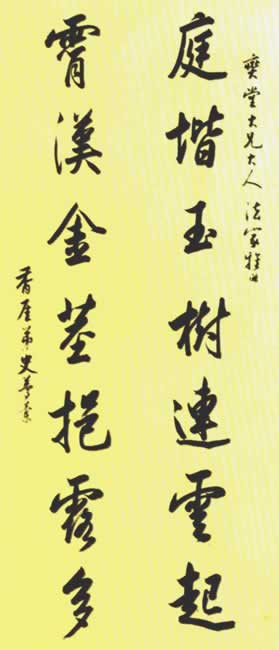 堂大兄大人法家雅
庭堦玉樹連雲起
霄漢金莖挹露多
香厓弟史夢蘭